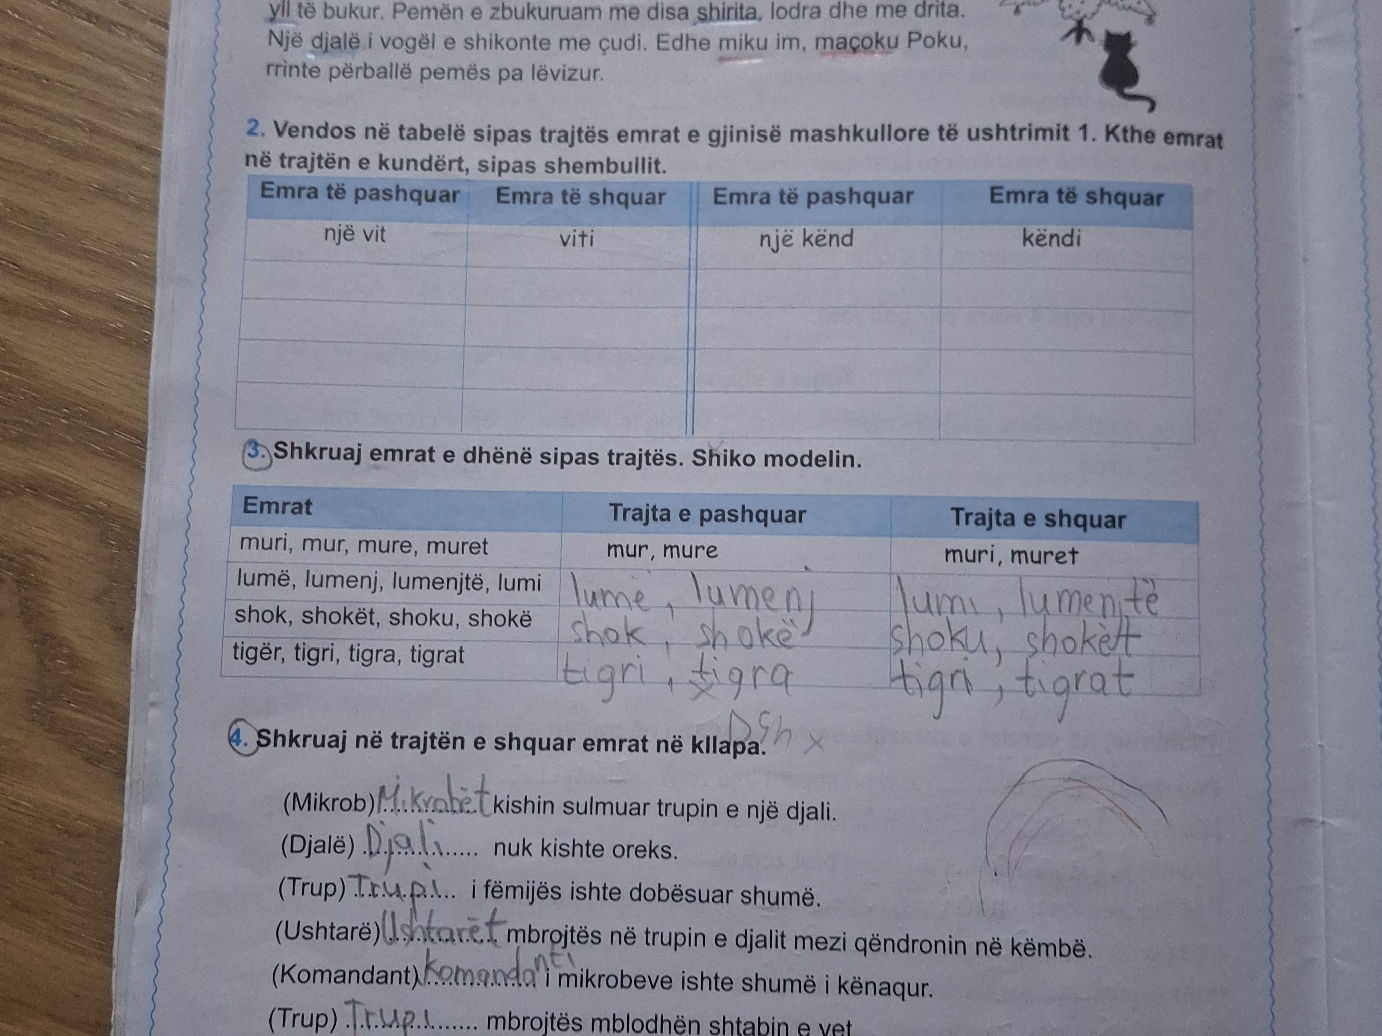 yll të bukur. Pemën e zbukuruam me disa shirita, lodra dhe me drita.
Një djalë i vogël e shikonte me çudi. Edhe miku im, maçoku Poku,
rrinte përballë pemës pa lëvizur.
2. Vendos në tabelë sipas trajtës emrat e gjinisë mashkullore të ushtrimit 1. Kthe emrat
në trajtën e kundërt, sipas shembullit.
Emra të pashquar Emra të shquar Emra të pashquar Emra të shquar
një vit viti një kënd këndi
3. Shkruaj emrat e dhënë sipas trajtës. Shiko modelin.
Emrat Trajta e pashquar Trajta e shquar
muri, mur, mure, muret mur, mure muri, muret
lumë, lumenj, lumenjtë, lumi lumë, lumenj lumi, lumenjtë
shok, shokët, shoku, shokë shok, shokë shoku, shokët
tigër, tigri, tigra, tigrat tigri, tigra tigri, tigrat
DSh x
4. Shkruaj në trajtën e shquar emrat në kllapa.
(Mikrob) Mikrobët kishin sulmuar trupin e një djali.
(Djalë) Djali nuk kishte oreks.
(Trup) Trupi i fëmijës ishte dobësuar shumë.
(Ushtarë) Ushtarët mbrojtës në trupin e djalit mezi qëndronin në këmbë.
(Komandant) Komandanti i mikrobeve ishte shumë i kënaqur.
(Trup) Trupi mbrojtës mblodhën shtabin e vet